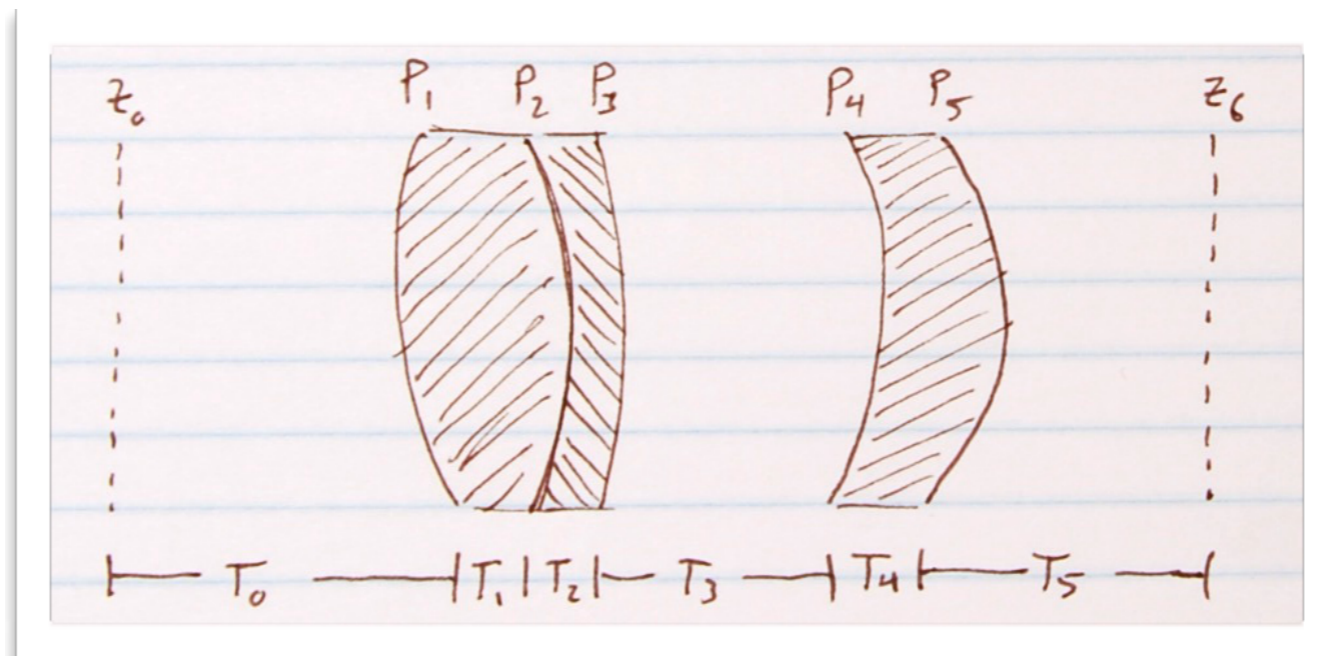 Z₀ P₁ P₂ P₃ P₄ P₅ Z₆
T₀ T₁ T₂ T₃ T₄ T₅